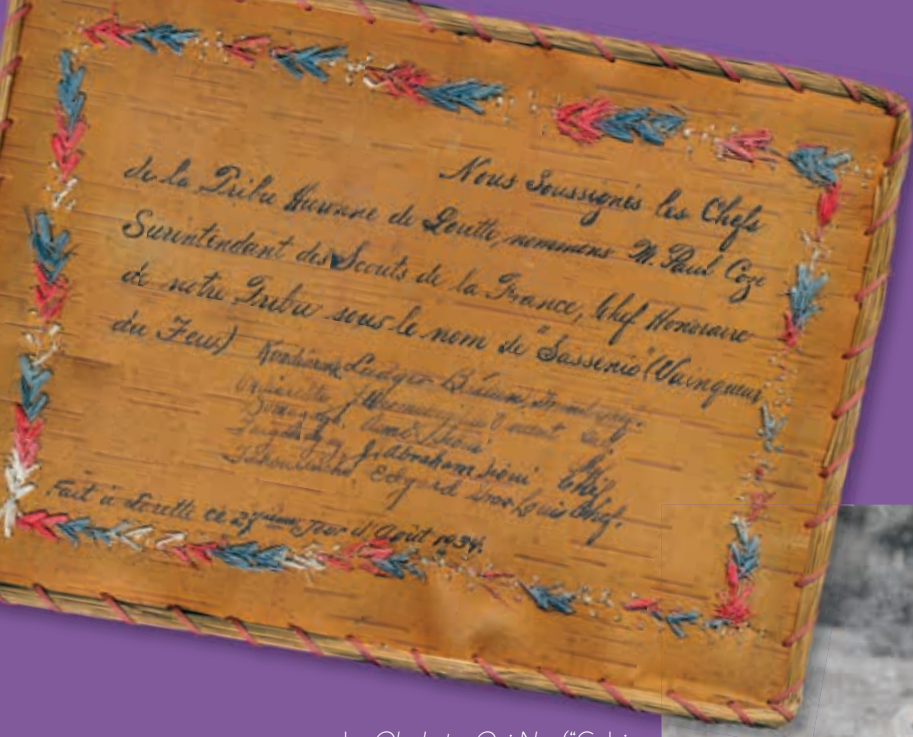 Nous Soussignés les Chefs
de la Tribu Huronne de Lorette, nommons M. Paul Coze
Surintendant des Scouts de la France, Chef Honoraire
de notre Tribu sous le nom de "Sassenio" (Vainqueur
du Feu)
Ludger
Chef
J. Abraham Sioui Chef
Edgard Gros Louis Chef.
Fait à Lorette ce 27ième jour d'Août 1934.